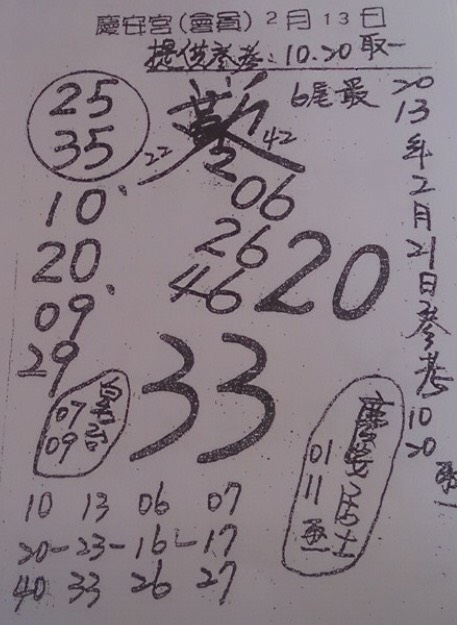 慶安宮(會員)2月13日
提供參考:10.20取一
25
35
22
42
6尾最
10、
20
09、
29
06
26
46
20
33
07
09
慶安居士
01
11
2013年2月21日參考
10
20
10 13 06 07
20-23-16-17
40 33 26 27